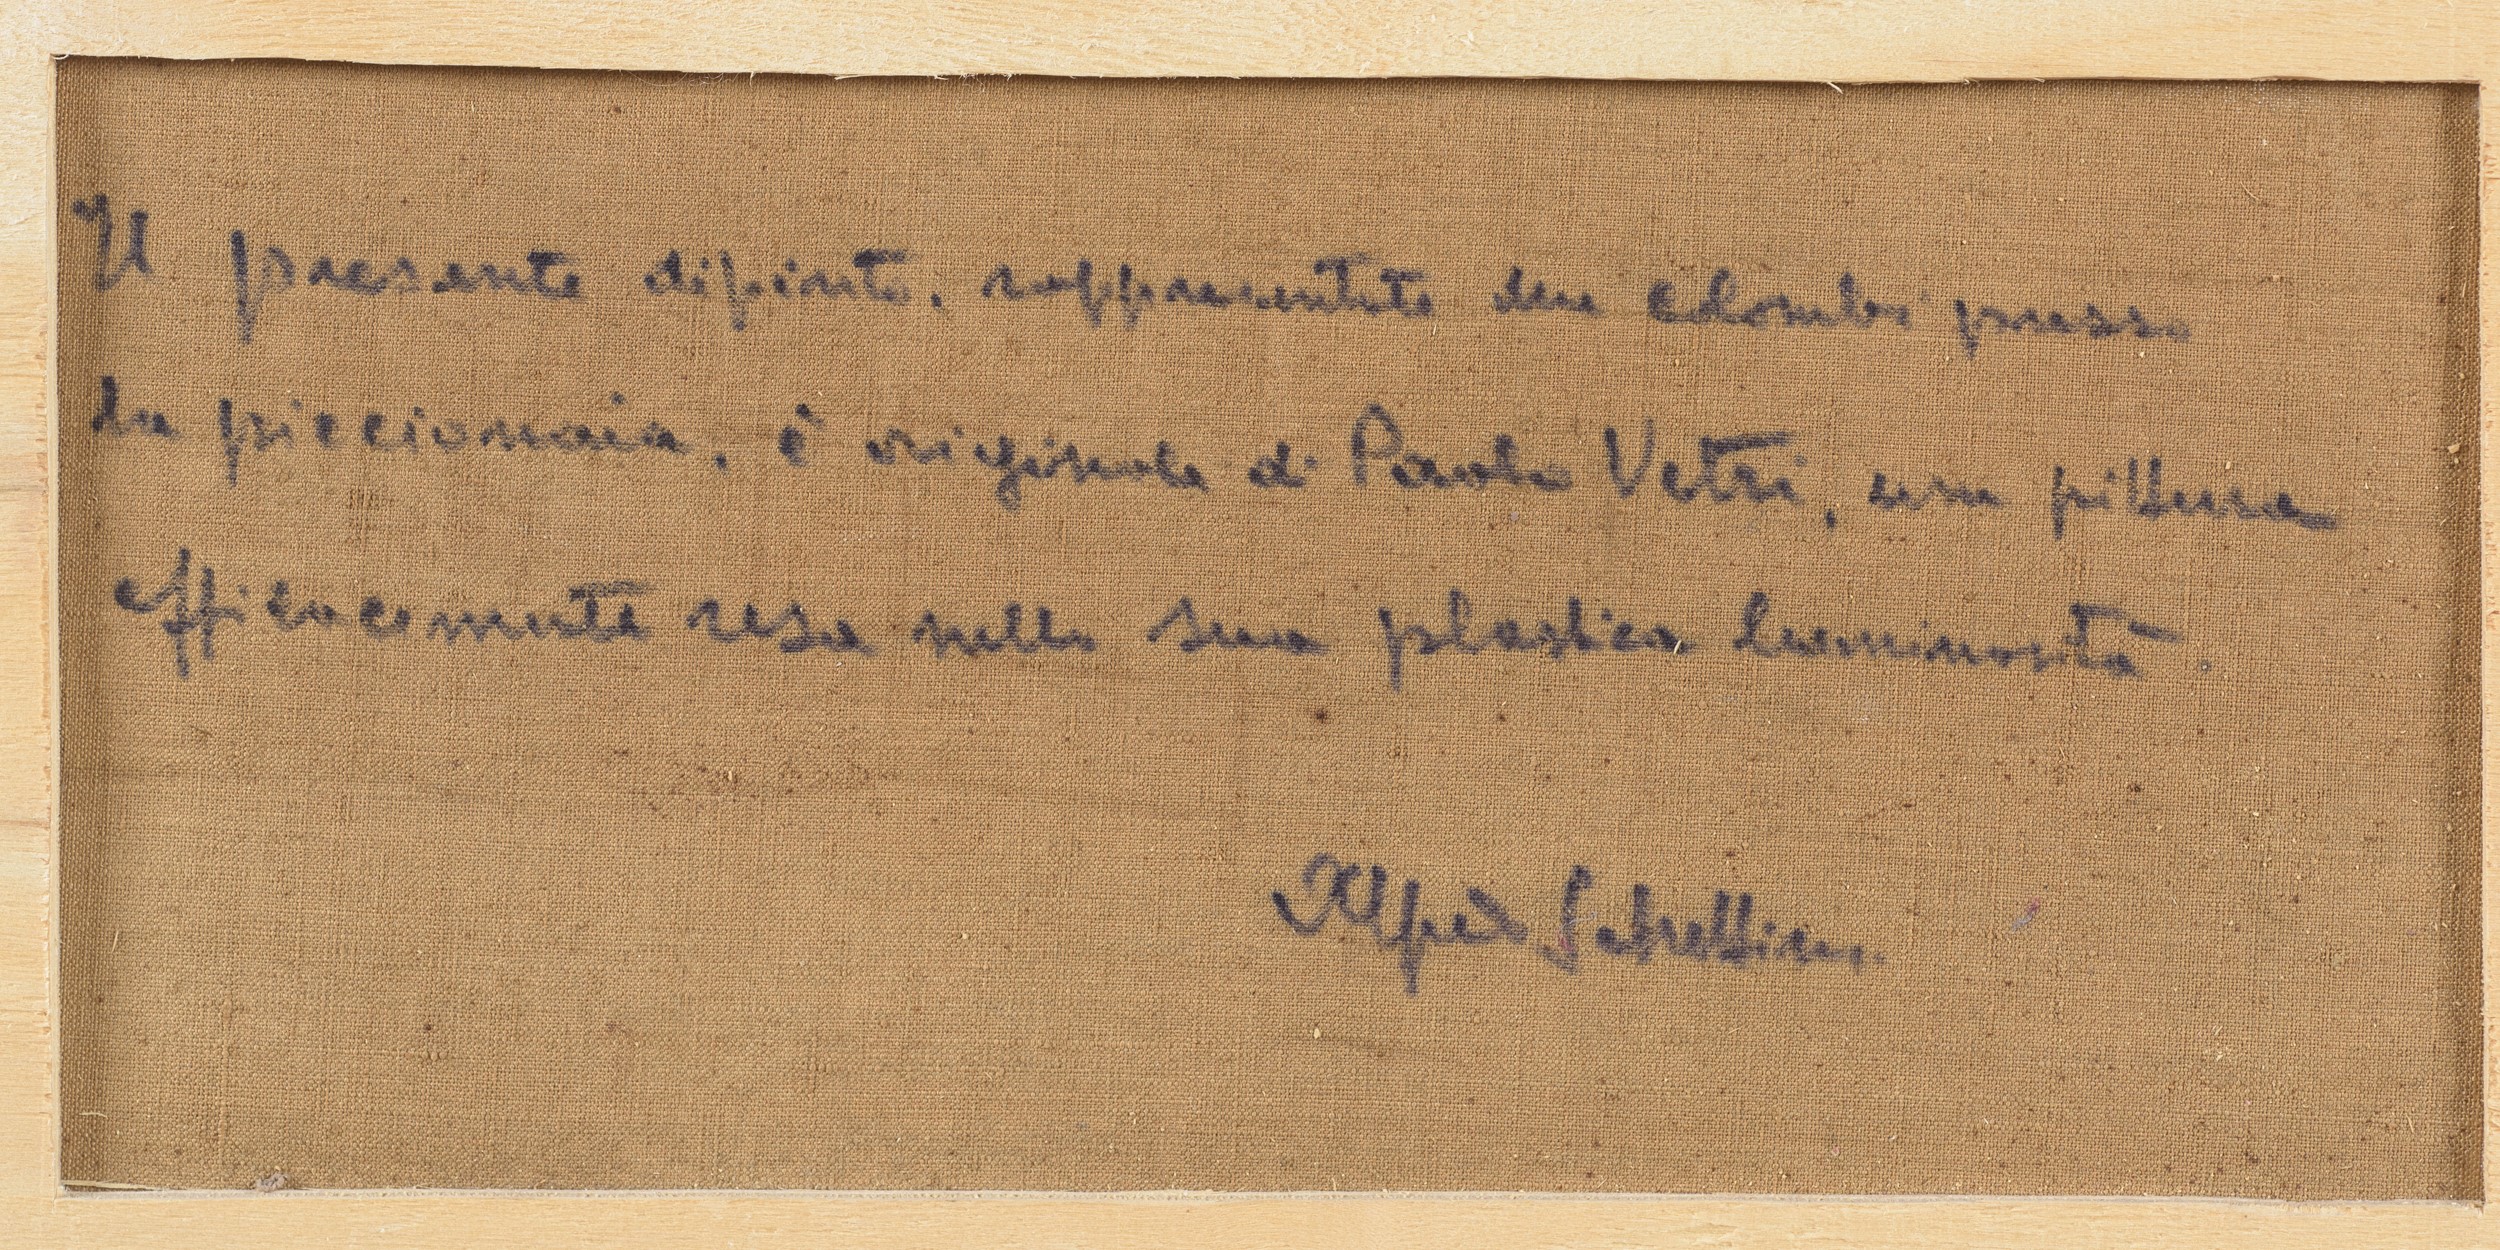 Il presente dipinto, rappresentate due colombi presso
la piccionaia, è originale di Paolo Vetri, una pittura
efficacemente resa nella sua plastica luminosità.
Alfredo Schettini